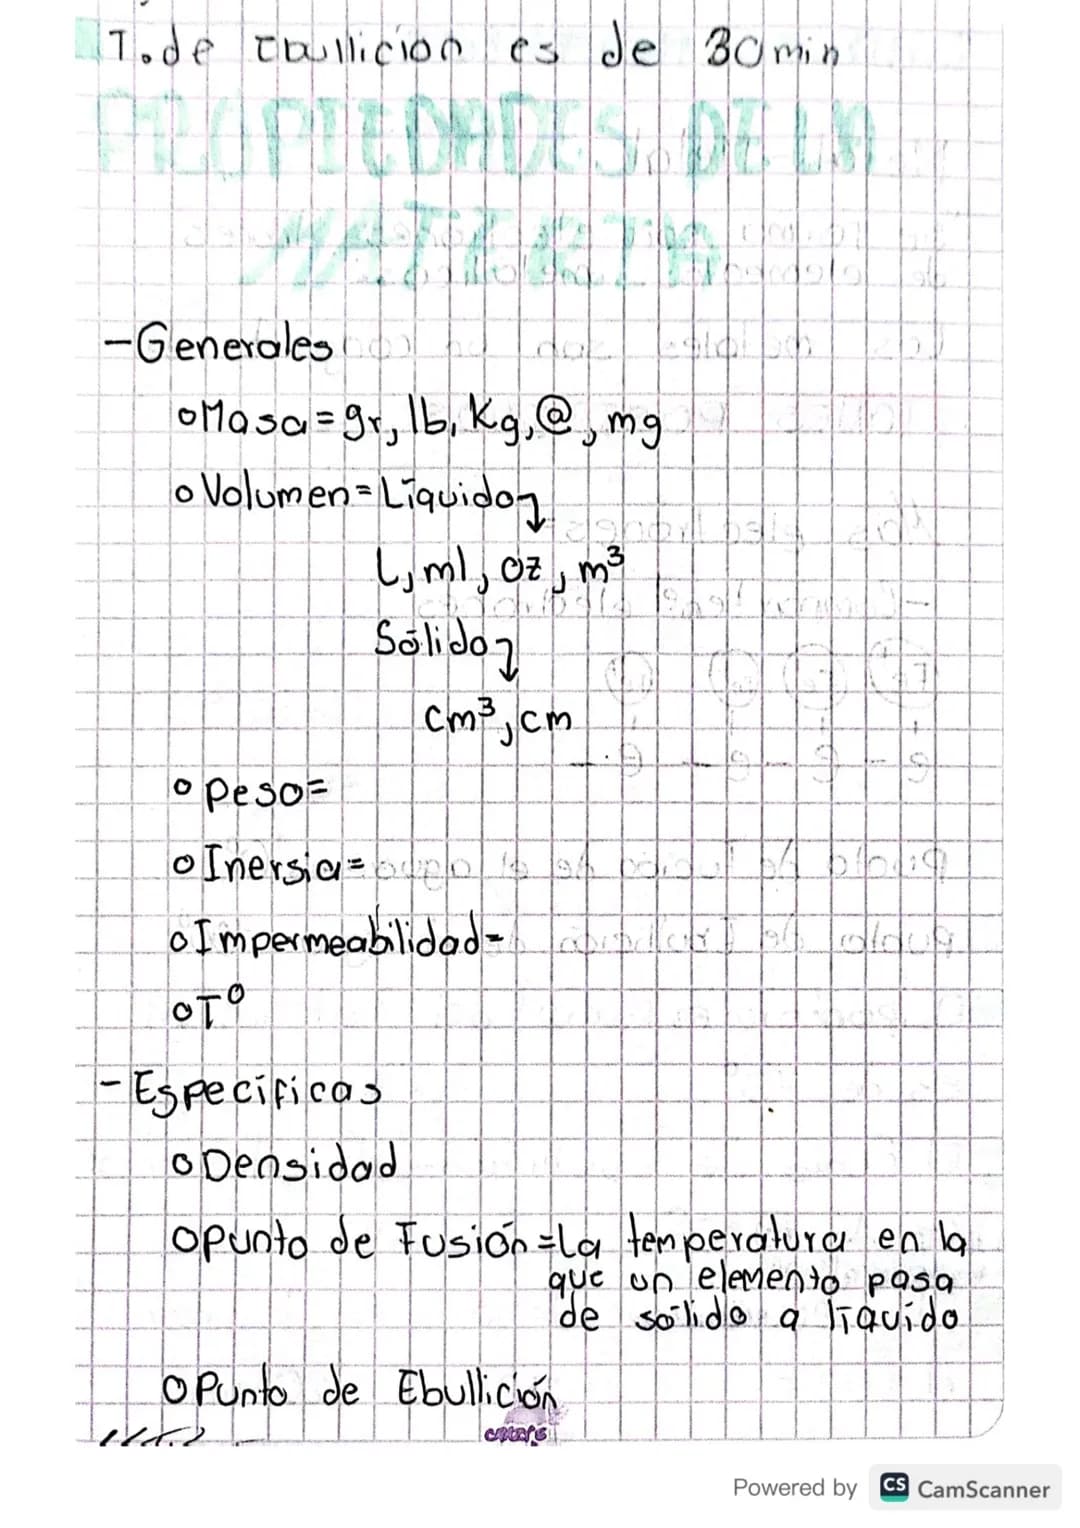 T. de Ebullición es de 30 min
PROPIEDADES DE LA
MATERIA
- Generales
o Masa = gr, lb, Kg, @, mg
o Volumen = Líquido ↴
L, ml, oz, m³
Sólido ↴
cm³, cm
o Peso =
o Inersia =
o Impermeabilidad =
o T°
- Específicas
o Densidad
o Punto de Fusión = La temperatura en la
que un elemento pasa
de sólido a líquido
o Punto de Ebullición
Powered by CS CamScanner